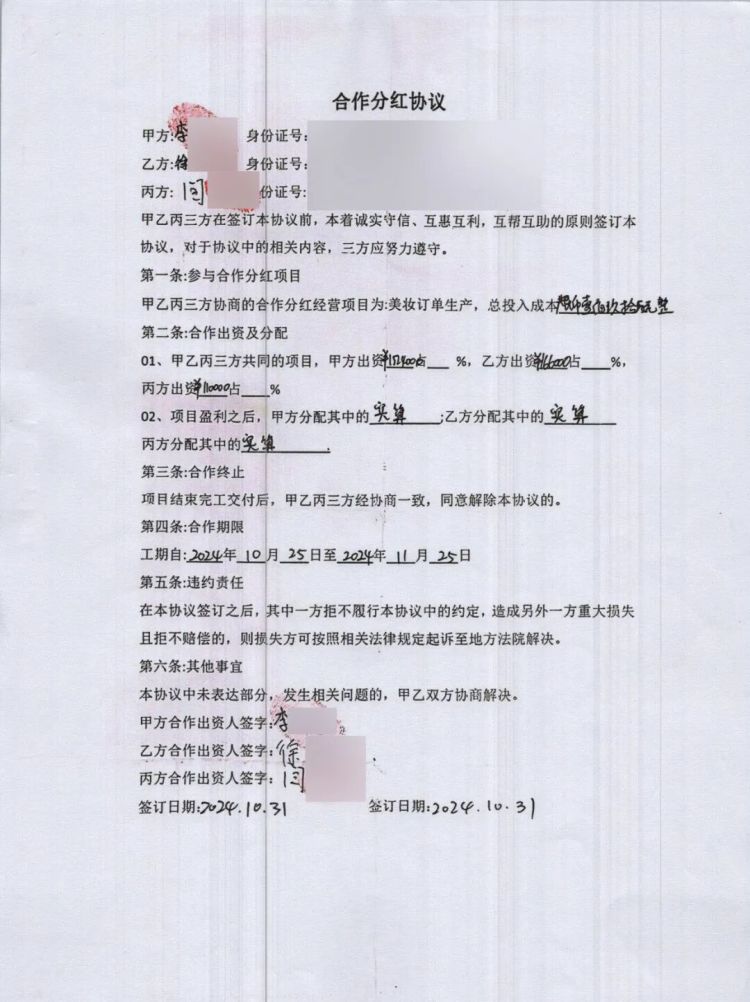 合作分红协议
甲方:李 身份证号:
乙方:徐 身份证号:
丙方: 闫 份证号:
甲乙丙三方在签订本协议前，本着诚实守信、互惠互利，互帮互助的原则签订本
协议，对于协议中的相关内容，三方应努力遵守。
第一条:参与合作分红项目
甲乙丙三方协商的合作分红经营项目为:美妆订单生产，总投入成本
第二条:合作出资及分配
01、甲乙丙三方共同的项目，甲方出资 占___%，乙方出资 占___%，
丙方出资¥110000占___%
02、项目盈利之后，甲方分配其中的 实算 ;乙方分配其中的 实算
丙方分配其中的实算 .
第三条:合作终止
项目结束完工交付后，甲乙丙三方经协商一致，同意解除本协议的。
第四条:合作期限
工期自:2024年 10 月 25 日至 2024年 11 月 25 日
第五条:违约责任
在本协议签订之后，其中一方拒不履行本协议中的约定，造成另外一方重大损失
且拒不赔偿的，则损失方可按照相关法律规定起诉至地方法院解决。
第六条:其他事宜
本协议中未表达部分，发生相关问题的，甲乙双方协商解决。
甲方合作出资人签字:李
乙方合作出资人签字:徐
丙方合作出资人签字:闫
签订日期:2024.10.31 签订日期:2024.10.31